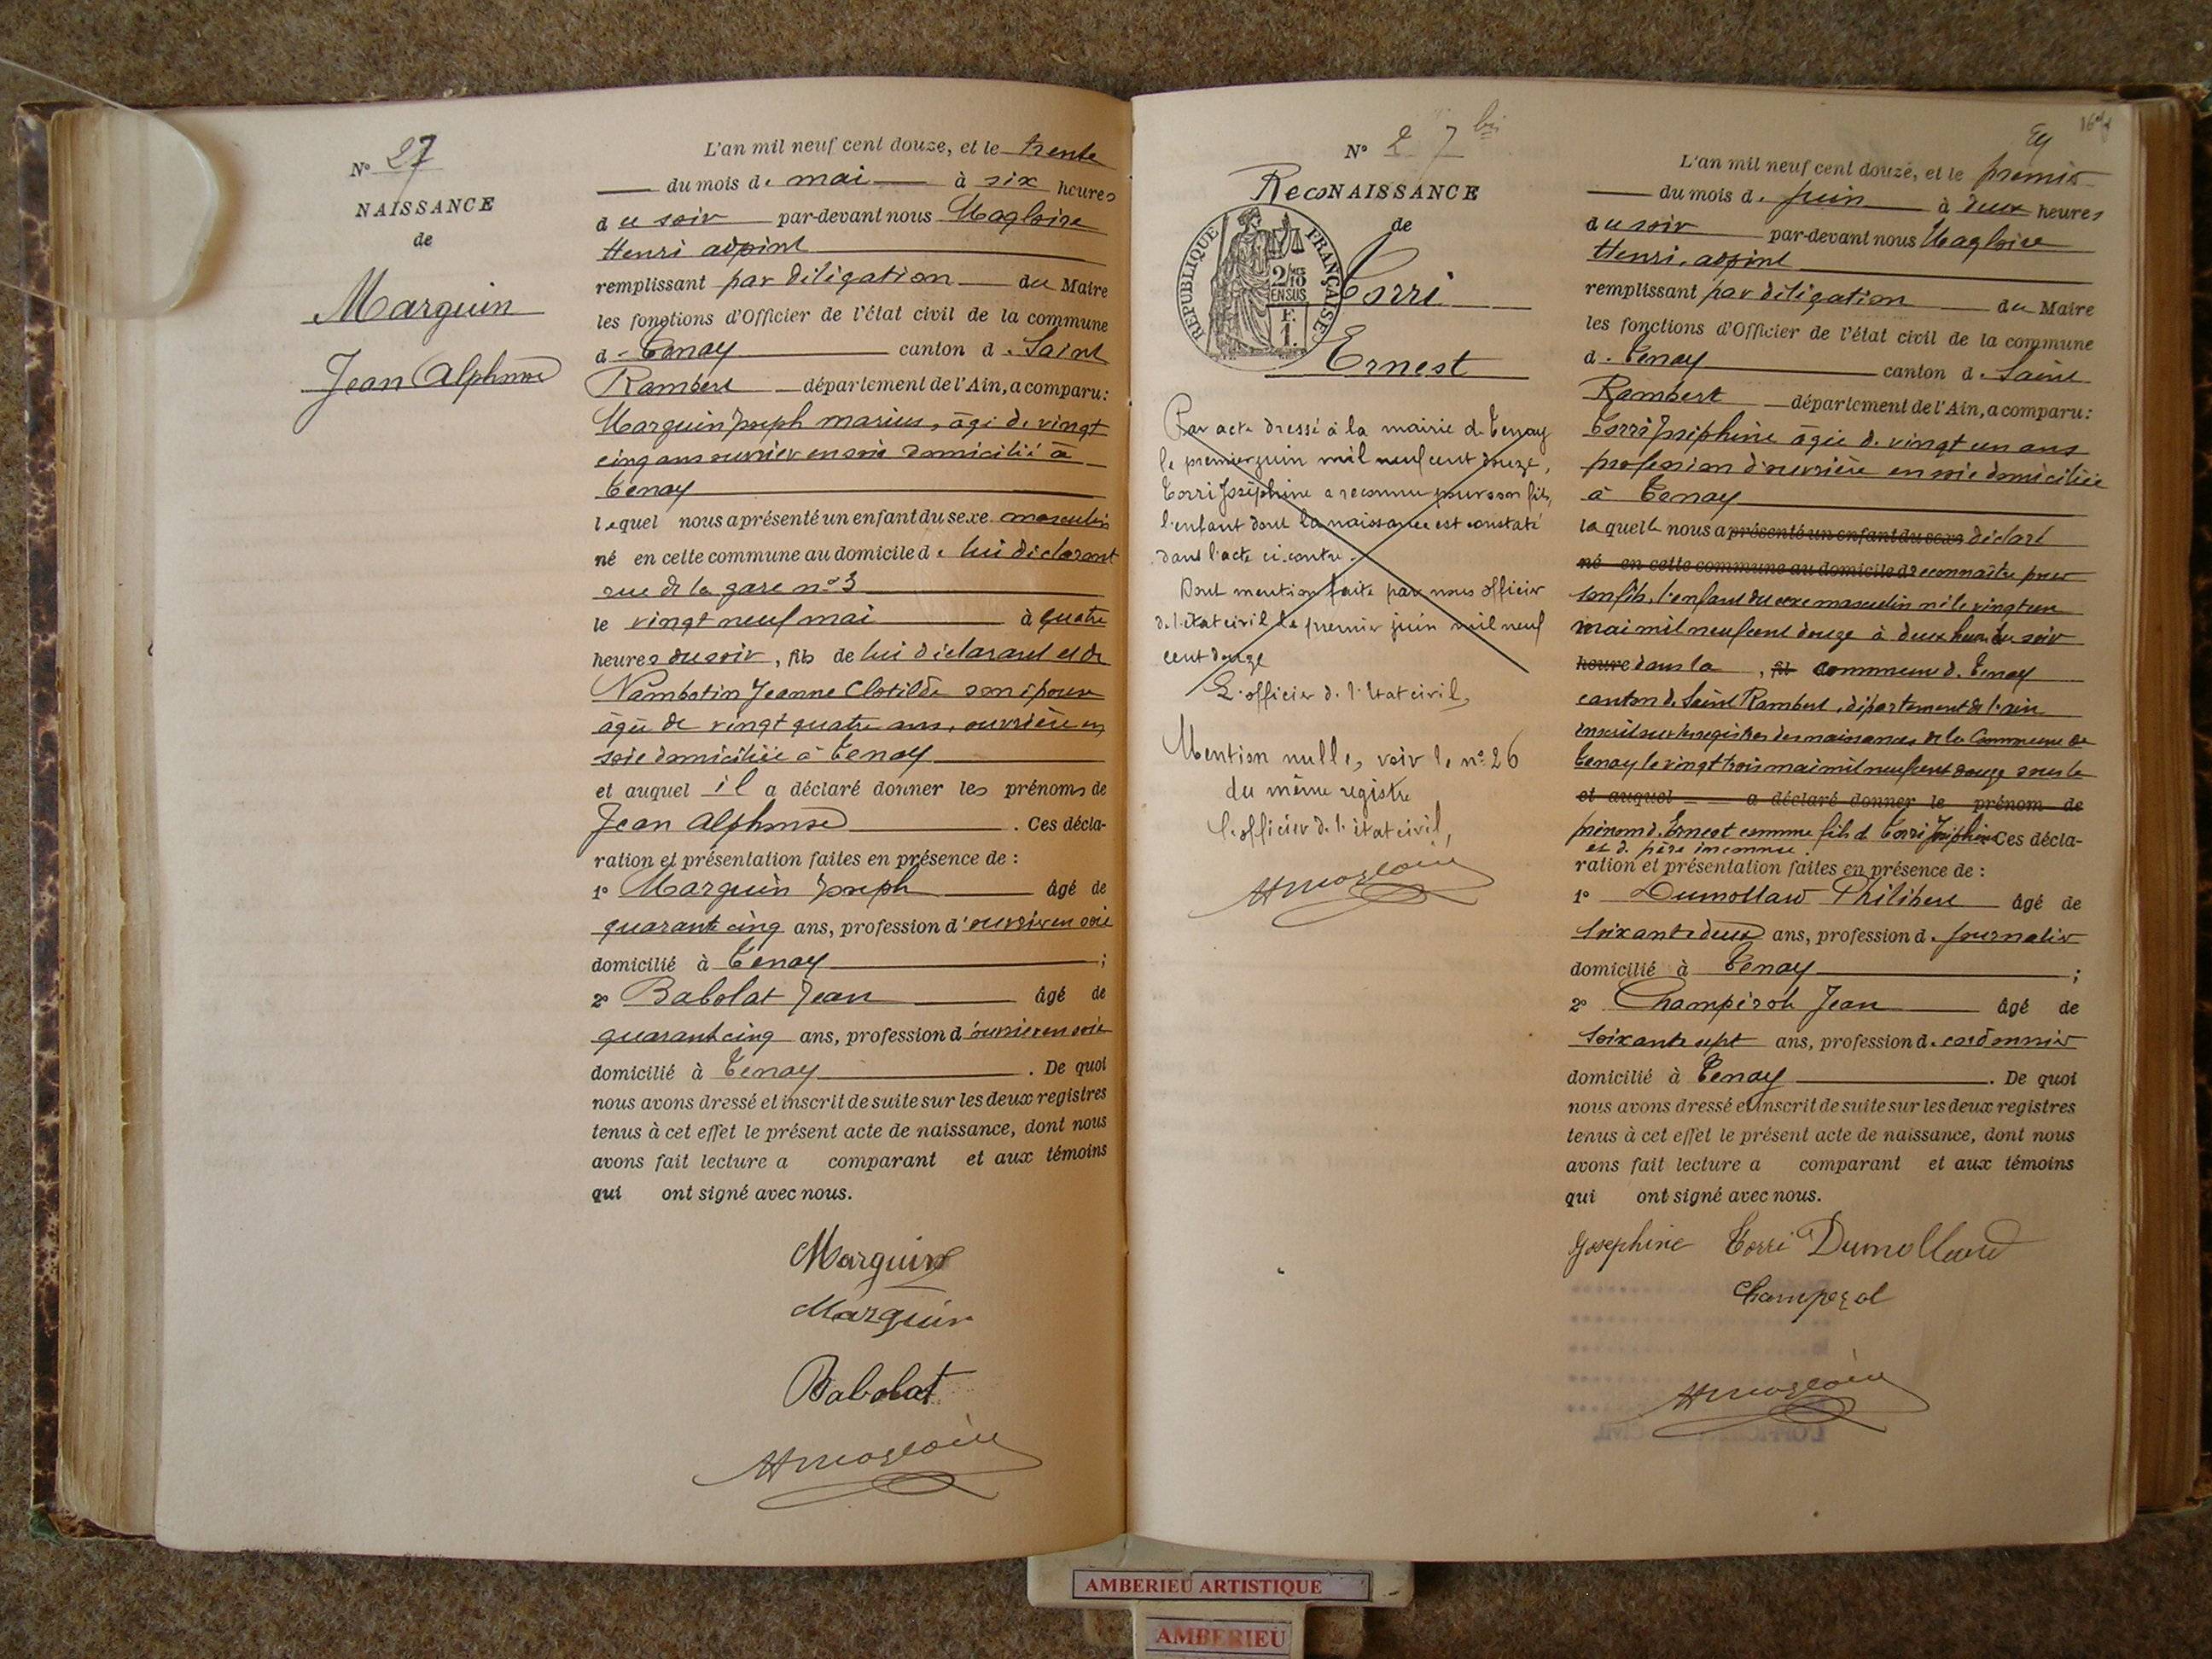 N° 27
NAISSANCE
de
Marguin
Jean Alphonse
L'an mil neuf cent douze, et le trente
du mois de mai à six heures
du soir par-devant nous Magloire
Henri adjoint
remplissant par délégation du Maire
les fonctions d'Officier de l'état civil de la commune
de Tenay canton de Saint
Rambert département de l'Ain, a comparu:
Marguin Joseph marius, âgé de vingt
cinq ans ouvrier en soie domicilié à
Tenay
lequel nous a présenté un enfant du sexe masculin
né en cette commune au domicile de lui déclarant
rue de la gare n° 3
le vingt neuf mai à quatre
heures du soir, fils de lui déclarant et de
Nambotin Jeanne Clotilde son épouse
âgée de vingt quatre ans, ouvrière en
soie domiciliée à Tenay
et auquel il a déclaré donner les prénoms de
Jean Alphonse . Ces décla-
ration et présentation faites en présence de :
1° Marguin Joseph âgé de
quarante cinq ans, profession d'ouvrier en soie
domicilié à Tenay ;
2° Babolat Jean âgé de
quarante cinq ans, profession d'ouvrier en soie
domicilié à Tenay . De quoi
nous avons dressé et inscrit de suite sur les deux registres
tenus à cet effet le présent acte de naissance, dont nous
avons fait lecture a comparant et aux témoins
qui ont signé avec nous.
Marguin
Marguin
Babolat
HMagloire
N° 27 bis
RecoNAISSANCE
de
RÉPUBLIQUE FRANÇAISE
2/10 EN SUS
F. 1.
Torri
Ernest
Par acte dressé à la mairie de Tenay
le premier juin mil neuf cent douze,
Torri Joséphine a reconnu pour son fils,
l'enfant dont la naissance est constaté
dans l'acte ci-contre.
Dont mention faite par nous officier
de l'état civil le premier juin mil neuf
cent douze
L'officier de l'état civil,
Mention nulle, voir le n° 26
du même registre
L'officier de l'état civil,
HMagloire
L'an mil neuf cent douze, et le premier
du mois de juin à deux heures
du soir par-devant nous Magloire
Henri, adjoint
remplissant par délégation du Maire
les fonctions d'Officier de l'état civil de la commune
de Tenay canton de Saint
Rambert département de l'Ain, a comparu:
Torri Joséphine âgée de vingt un ans
profession d'ouvrière en soie domiciliée
à Tenay
laquelle nous a présenté un enfant du sexe déclaré
né en cette commune au domicile de reconnaître pour
son fils, l'enfant du sexe masculin né le vingt un
mai mil neuf cent douze à deux heures du soir
heure dans la , fil commune de Tenay
canton de Saint Rambert, département de l'ain
inscrit sur les registres des naissances de la Commune de
Tenay le vingt trois mai mil neuf cent douze sous le
et auquel a déclaré donner le prénom de
prénom d'Ernest comme fils de Torri Joséphine Ces décla-
et de père inconnu.
ration et présentation faites en présence de :
1° Dumollard Philibert âgé de
soixante deux ans, profession de journalier
domicilié à Tenay ;
2° Champérol Jean âgé de
soixante sept ans, profession de cordonnier
domicilié à Tenay . De quoi
nous avons dressé et inscrit de suite sur les deux registres
tenus à cet effet le présent acte de naissance, dont nous
avons fait lecture a comparant et aux témoins
qui ont signé avec nous.
Josephine Torri Dumollard
Champerol
HMagloire
AMBERIEU ARTISTIQUE
AMBERIEU